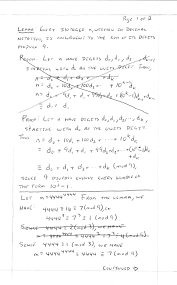 Page 1 of 2
Lemma Every integer n, written in decimal
notation, is congruent to the sum of its digits
modulo 9.
Proof Let n have digits d₀, d₁, d₂, ..., dₖ,
starting with d₀ as the units digit. Then,
n = d₀ + 10d₁ + 100d₂ + ...
Proof Let n have digits d₀, d₁, d₂, ..., dₖ,
starting with d₀ as the units digit.
Then n = d₀ + 10d₁ + 100d₂ + ... + 10ᵏdₖ
≡ d₀ + d₁ + d₂ + ... + dₖ (mod 9),
since 9 divides evenly every number of
the form 10ᵏ-1
Let n = 4444⁴⁴⁴⁴ From the lemma, we
have 4444 ≡ 16 ≡ 7 (mod 9), so
4444³ ≡ 7³ ≡ 1 (mod 9)
Since 4444 ≡ 1 (mod 3), we have
n = 4444⁴⁴⁴⁴ ≡ 4444 ≡ 7 (mod 9)
Continued